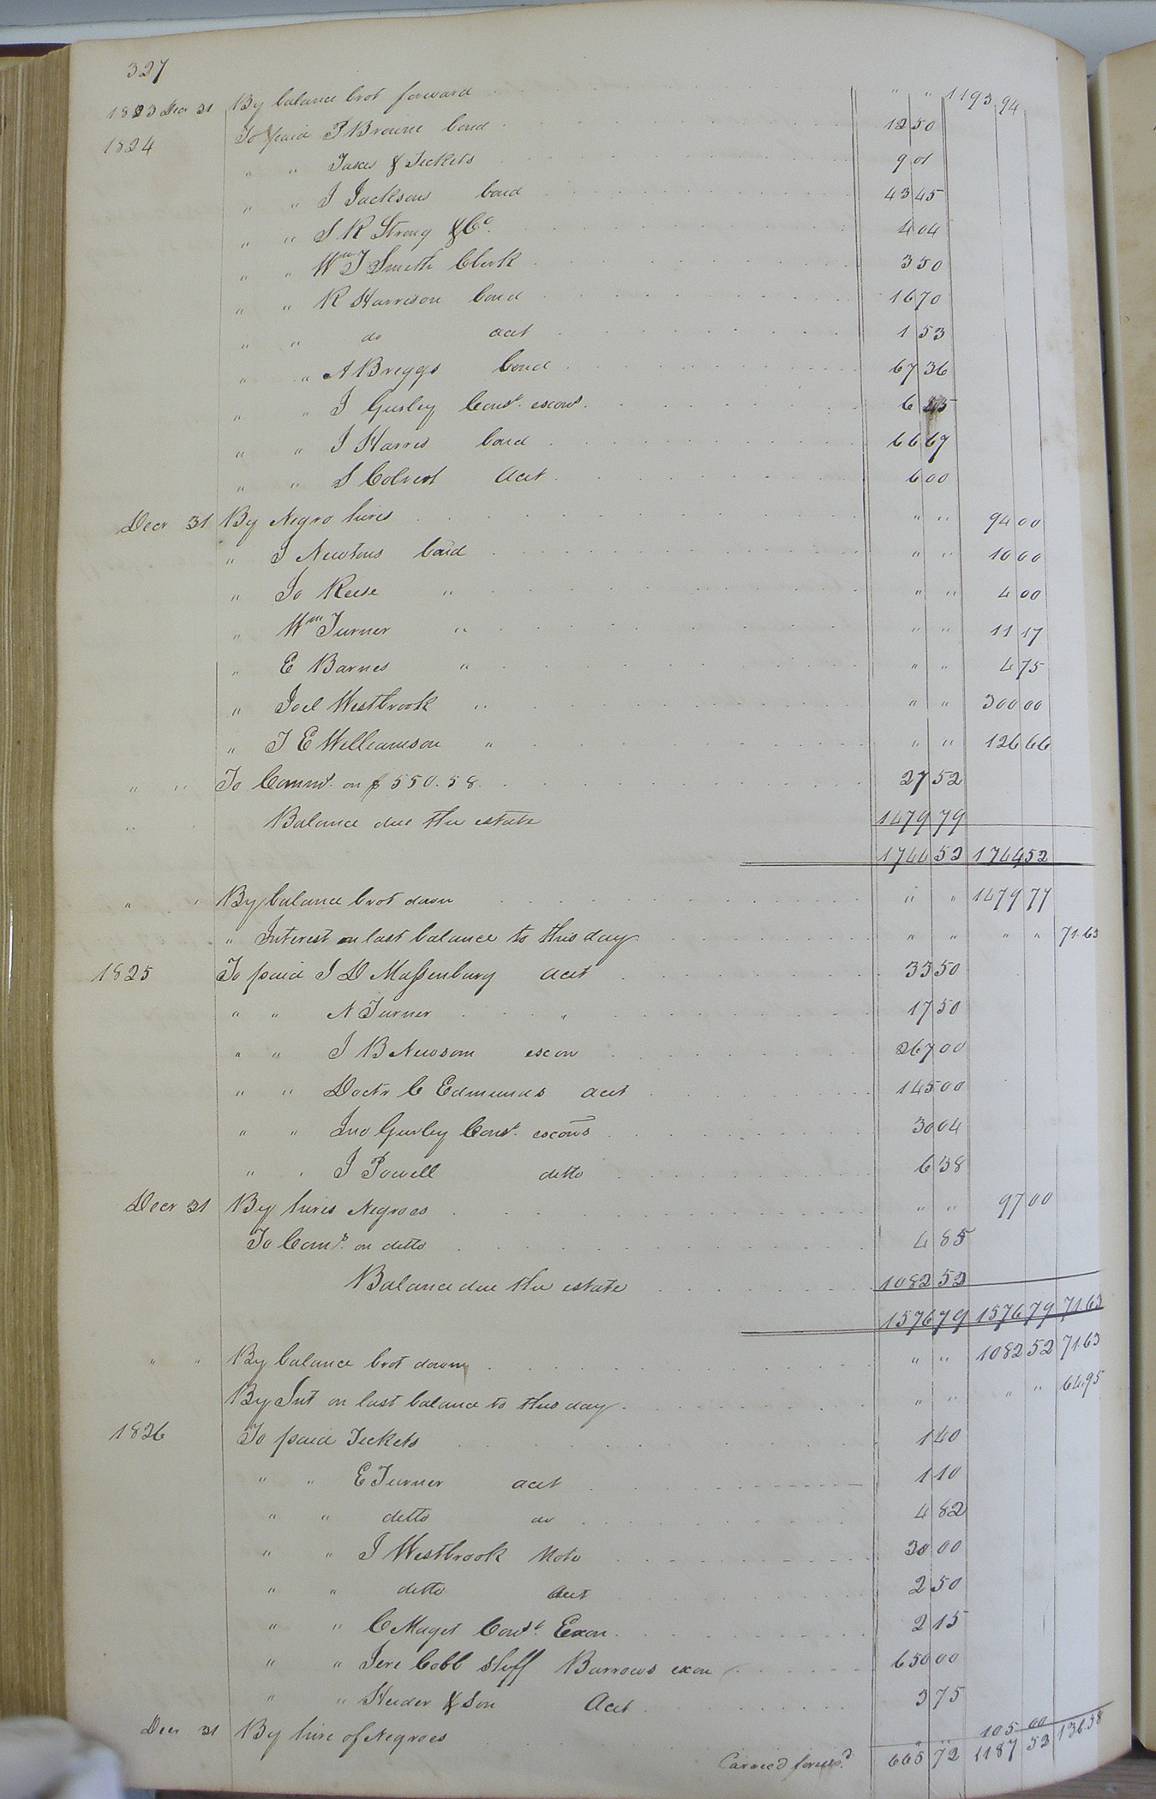 327
1823 Decr 31 By balance brot forward " " 1193 94
1824 To paid P Browne bond 12 50
" " Taxes & Tickets 9 01
" " J Jacksons bond 43 45
" " S R Strong & Co. 4 04
" " Wm J Smith Clerk 3 50
" " R Harrison bond 16 70
" " do acct 1 53
" " A Breggs bond 67 36
" " J Gurley Const. exons. 6
" " J Harris bond 66 67
" " S Colvert Acct 6 00
Decr 31 By Negro hires " " 94 00
" J Newtons bond " " 10 00
" Jo Reese " " " 4 00
" Wm Turner " " " 11 17
" E Barnes " " " 4 75
" Joel Westbrook " " " 300 00
" J E Williamson " " " 126 66
" " To Comms. on $550.58 27 52
" Balance due the estate 1479 79
1744 52 1744 52
" " By balance brot down " " 1479 77
" Interest on last balance to this day " " " " 71.63
1825 To paid J D Massenburg acct 33 50
" " N Turner " 17 50
" " J B Newsom excon 267 00
" " Doctr C Edmunds acct 145 00
" " Jno Gurley Const. excons 30 04
" " J Powell ditto 6 38
Decr 31 By hires Negroes " " 97 00
To Coms. on ditto 4 85
Balance due the estate 1082 52
1576 79 1576 79 71.63
" " By balance brot down " " 1082 52 71.63
By Int on last balance to this day " " " " 64.95
1826 To paid Tickets 1 40
" " E Turner acct 1 10
" " ditto do 4 82
" " J Westbrook Note 30 00
" " ditto Acct 2 50
" " C Maget Const. Exon. 2 15
" " Jere Cobb shff Barrows exon 650 00
" " Heider & Son Acct 3 75
Decr 31 By hire of Negroes " " 105 00
Carried forwd. 665 72 1187 52 136.58